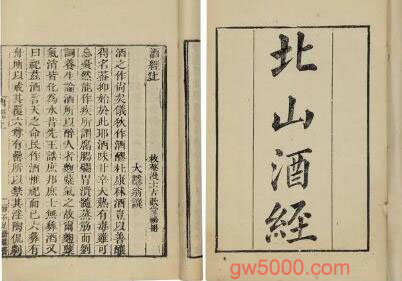 北山酒經
酒經上
枚菴漫士古歡堂秘冊
大隱翁譔
酒之作尚矣儀狄作酒醪杜康秫酒豈以善釀
得名蓋抑始於此耶酒味甘辛大熱有毒雖可
忘憂然能作疾所謂腐腸爛胃潰髓蒸筋而劉
詞養生論酒所以醉人者麴糵氣之故爾麴糵
氣消皆化為水昔先王誥庶邦庶士無彝酒又
曰祀茲酒言天之命民作酒惟祀而已六彝有
舟所以戒其覆六尊有罍所以禁其淫陶侃劇
gw5000.com